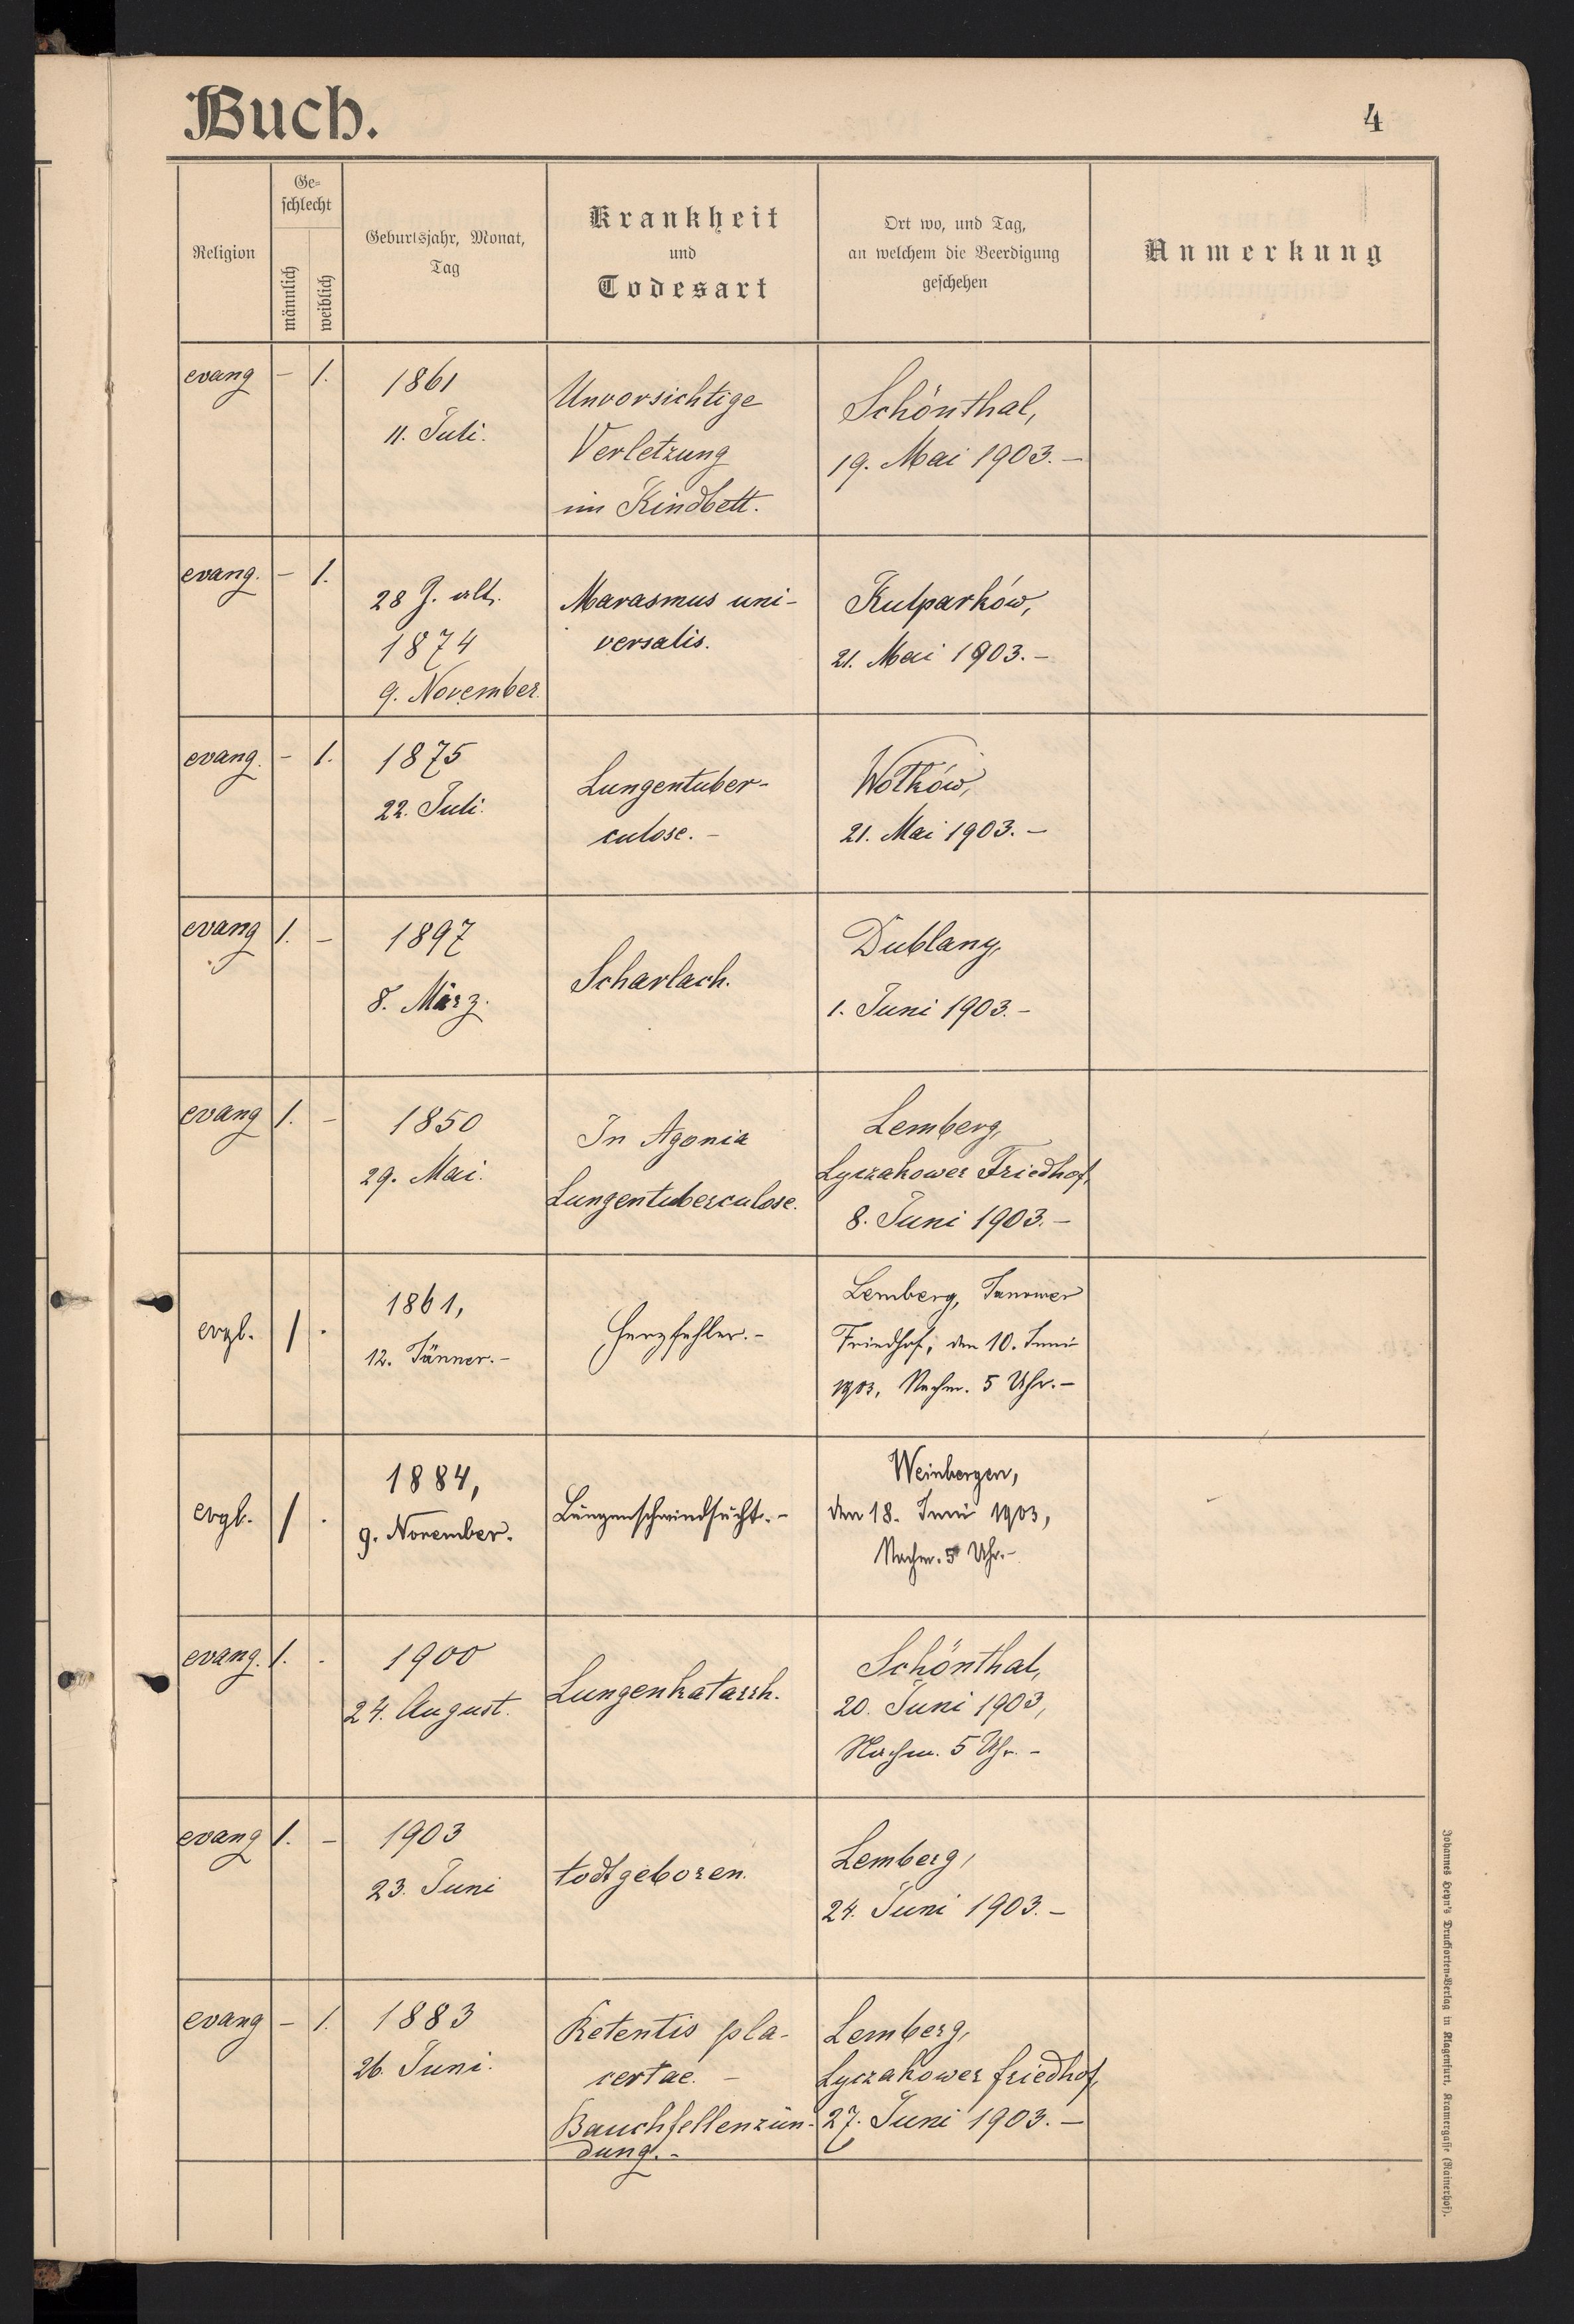 Buch.
4
Religion
Ge-
schlecht
männlich
weiblich
Geburtsjahr, Monat,
Tag
Krankheit
und
Todesart
Ort wo, und Tag,
an welchem die Beerdigung
geschehen
Anmerkung
evang - 1.
1861
11. Juli.
Unvorsichtige
Verletzung
im Kindbett.
Schönthal,
19. Mai 1903.-
evang. - 1.
28 J. alt.
1874
9. November.
Marasmus uni-
versalis.
Kulparków,
21. Mai 1903.-
evang. - 1.
1875
22. Juli.
Lungentuber-
culose.-
Wołków,
21. Mai 1903.-
evang 1. -
1897
8. März.
Scharlach.
Dublany,
1. Juni 1903.-
evang 1. -
1850
29. Mai.
In Agonia
Lungentuberculose.
Lemberg,
Lyczakower Friedhof,
8. Juni 1903.-
evgl. 1 .
1861,
12. Jänner.-
Herzfehler.-
Lemberg, Janower
Friedhof, den 10. Juni
1903, Nachm. 5 Uhr.-
evgl. 1 .
1884,
9. November.
Lungenschwindsucht.-
Weinbergen,
den 18. Juni 1903,
Nachm. 5 Uhr.-
evang. 1. .
1900
24. August.
Lungenkatarrh.
Schönthal,
20. Juni 1903,
Nachm. 5 Uhr.-
evang 1. -
1903
23. Juni
todtgeboren.
Lemberg,
24. Juni 1903.-
evang - 1.
1883
26. Juni.
Retentis pla-
centae. -
Bauchfellenzün-
dung.-
Lemberg,
Lyczakower Friedhof,
27. Juni 1903.-
Johannes Heyn's Drucksorten-Verlag in Klagenfurt, Kramergasse (Rainerhof).